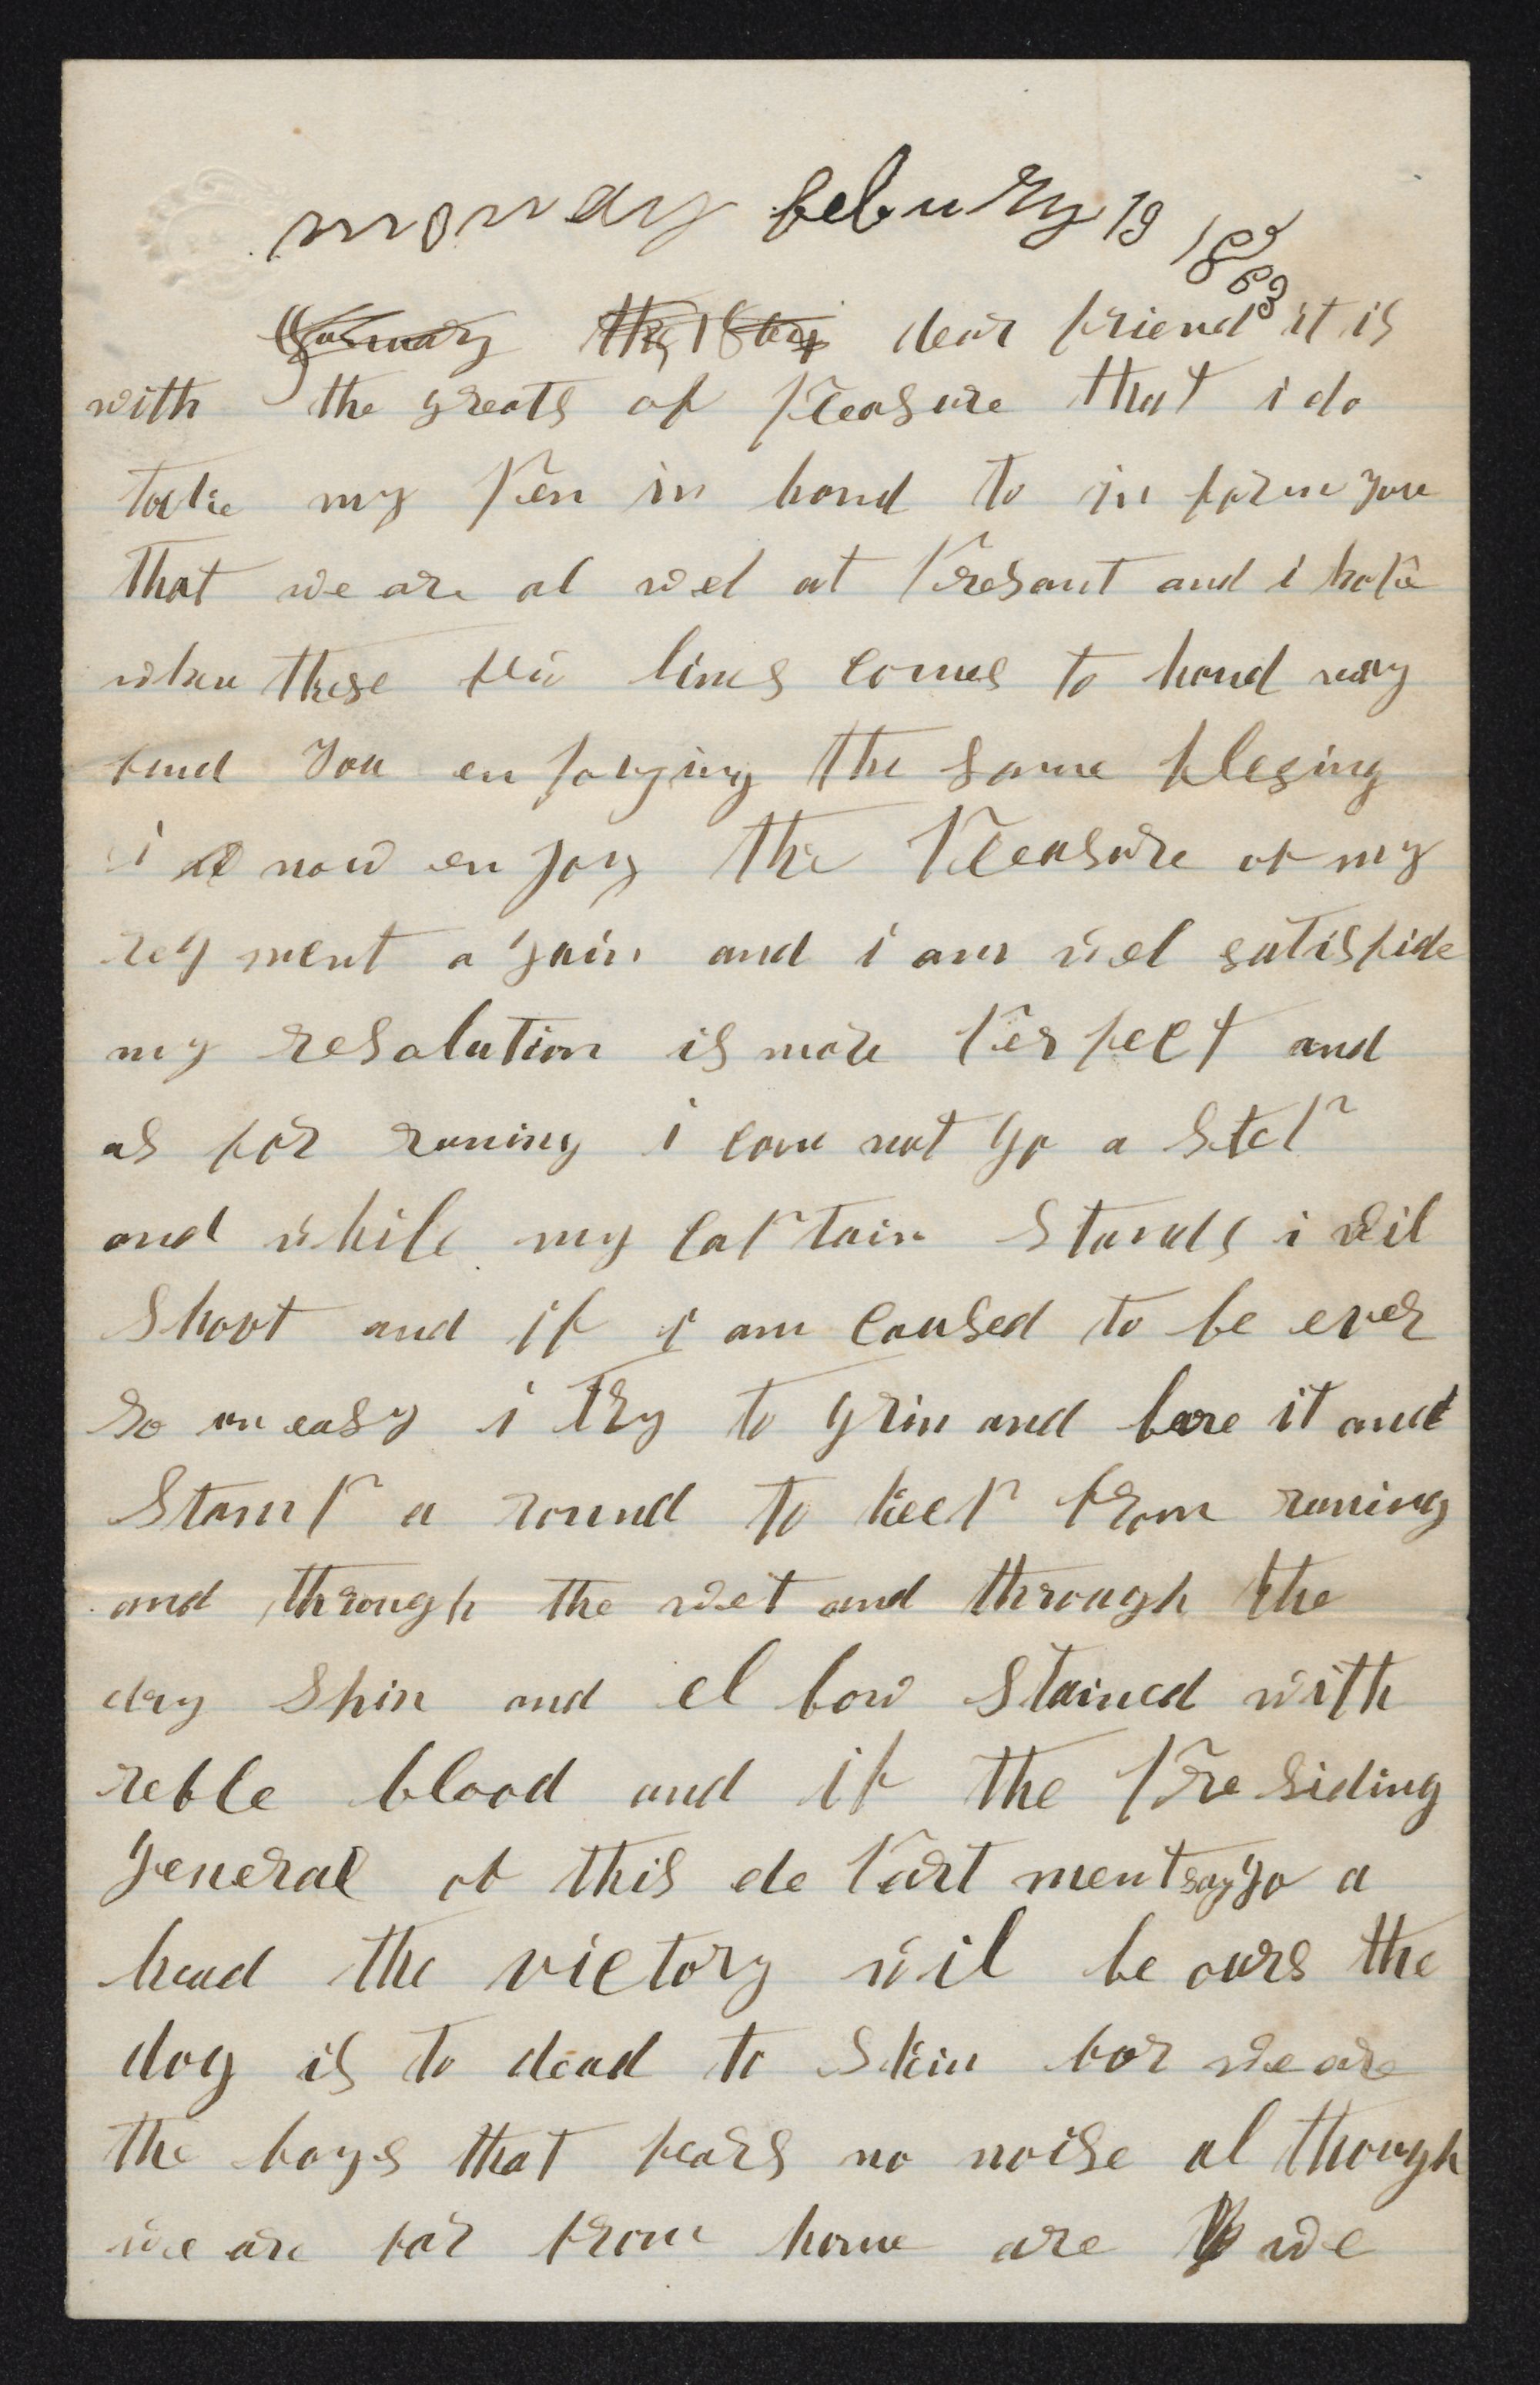 monday febuary 19 1863
dear friend it is
with the greats of pleasure that i do
take my pen in hand to in form you
that we are al wel at presant and i hope
when these few lines comes to hand may
find you en joying the same blesing
i now en joy the pleasure of my
reg ment a gain and i am wel satisfide
my resolution is more perfect and
as for runing i can not go a step
and while my captain stands i wil
shoot and if i am caused to be ever
so un easy i try to grin and bare it and
stamp a round to keep from runing
and through the wet and through the
day shin and el bow stained with
reble blood and if the presiding
general of this de part ment say go a
head the victory wil be ours the
dog is to dead to skin for we are
the boys that fears no noise al though
we are far from home are we